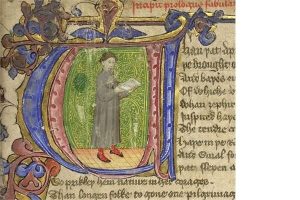 prologus fabula
Han þat apr
þe
And baþed eu
Of which v
Whan zephir
Inspired haþe
The tendre c
Haþe in þe ra
And smal fou
þat slepen a
So prikkeþ hem nature in her corages
Than longen folke to gone on pilgrimag